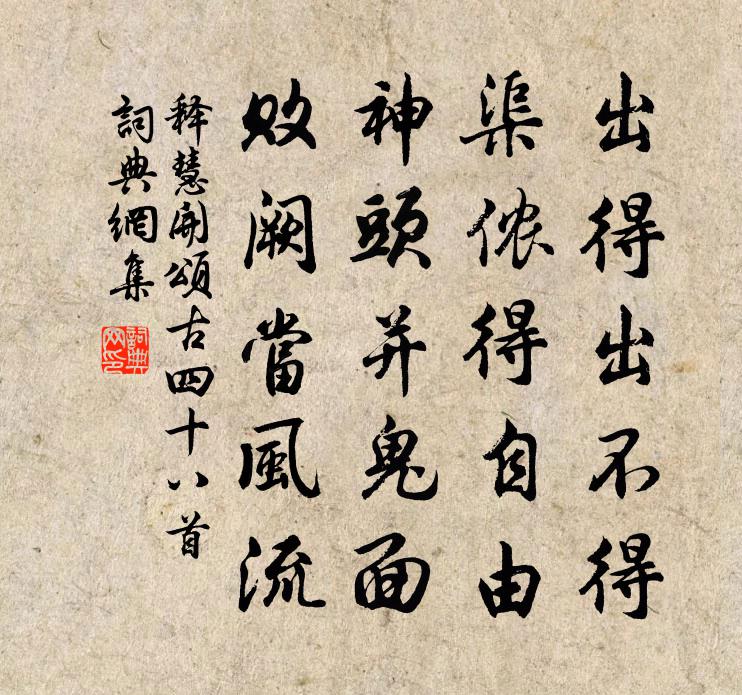 出得出不得
渠侬得自由
神頭并鬼面
败阙當風流
释慧開頌古四十八首
詞典網集
詞典网印